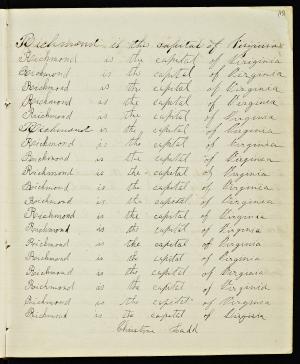 Richmond is the capital of Virginia
Richmond is the capital of Virginia
Richmond is the capital of Virginia
Richmond is the capital of Virginia
Richmond is the capital of Virginia
Richmond is the capital of Virginia
Richmond is the capital of Virginia
Richmond is the capital of Virginia
Richmond is the capital of Virginia
Richmond is the capital of Virginia
Richmond is the capital of Virginia
Richmond is the capital of Virginia
Richmond is the capital of Virginia
Richmond is the capital of Virginia
Richmond is the capital of Virginia
Richmond is the capital of Virginia
Richmond is the capital of Virginia
Richmond is the capital of Virginia
Richmond is the capital of Virginia
Richmond is the capital of Virginia
Christina